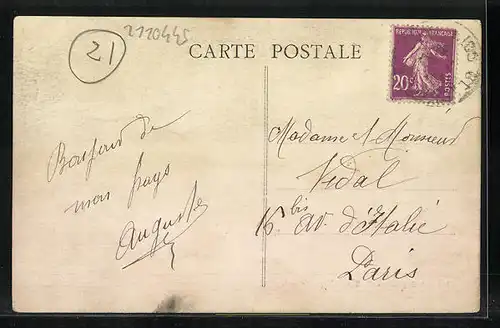 21
2120445
CARTE POSTALE
REPUBLIQUE FRANÇAISE
20c
POSTES
Bonjour de
mon pays
Auguste
Madame et Monsieur
Vidal
16 bis av. d'Italie
Paris